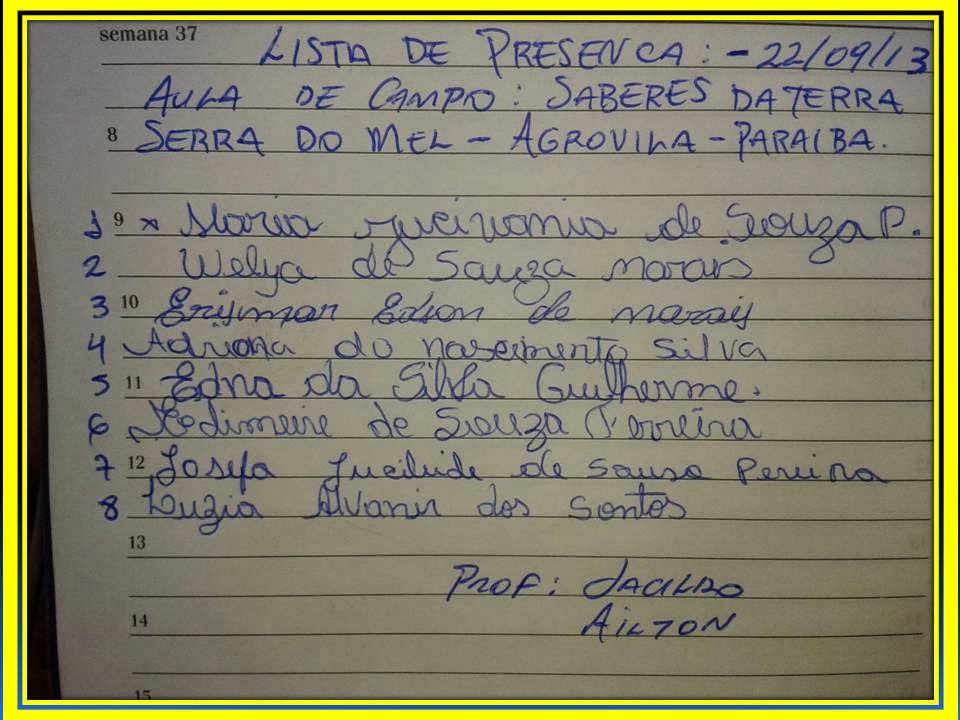 semana 37
LISTA DE PRESENCA: - 22/09/13
AULA DE CAMPO: SABERES DA TERRA
8 SERRA DO MEL - AGROVILA - PARAIBA.
1 9 x Maria de Souza P.
2 Welya de Sauza morais
3 10 Erismar Edson de morais
4 Adriana do nascimento silva
5 11 Edna da Silva Guilherme.
6 de Souza Ferreira
7 12 Josefa Jucileide de Sousa Pereira
8 Luzia Alvanir dos Santos
13
PROF: JACILDO
14 AILTON
15